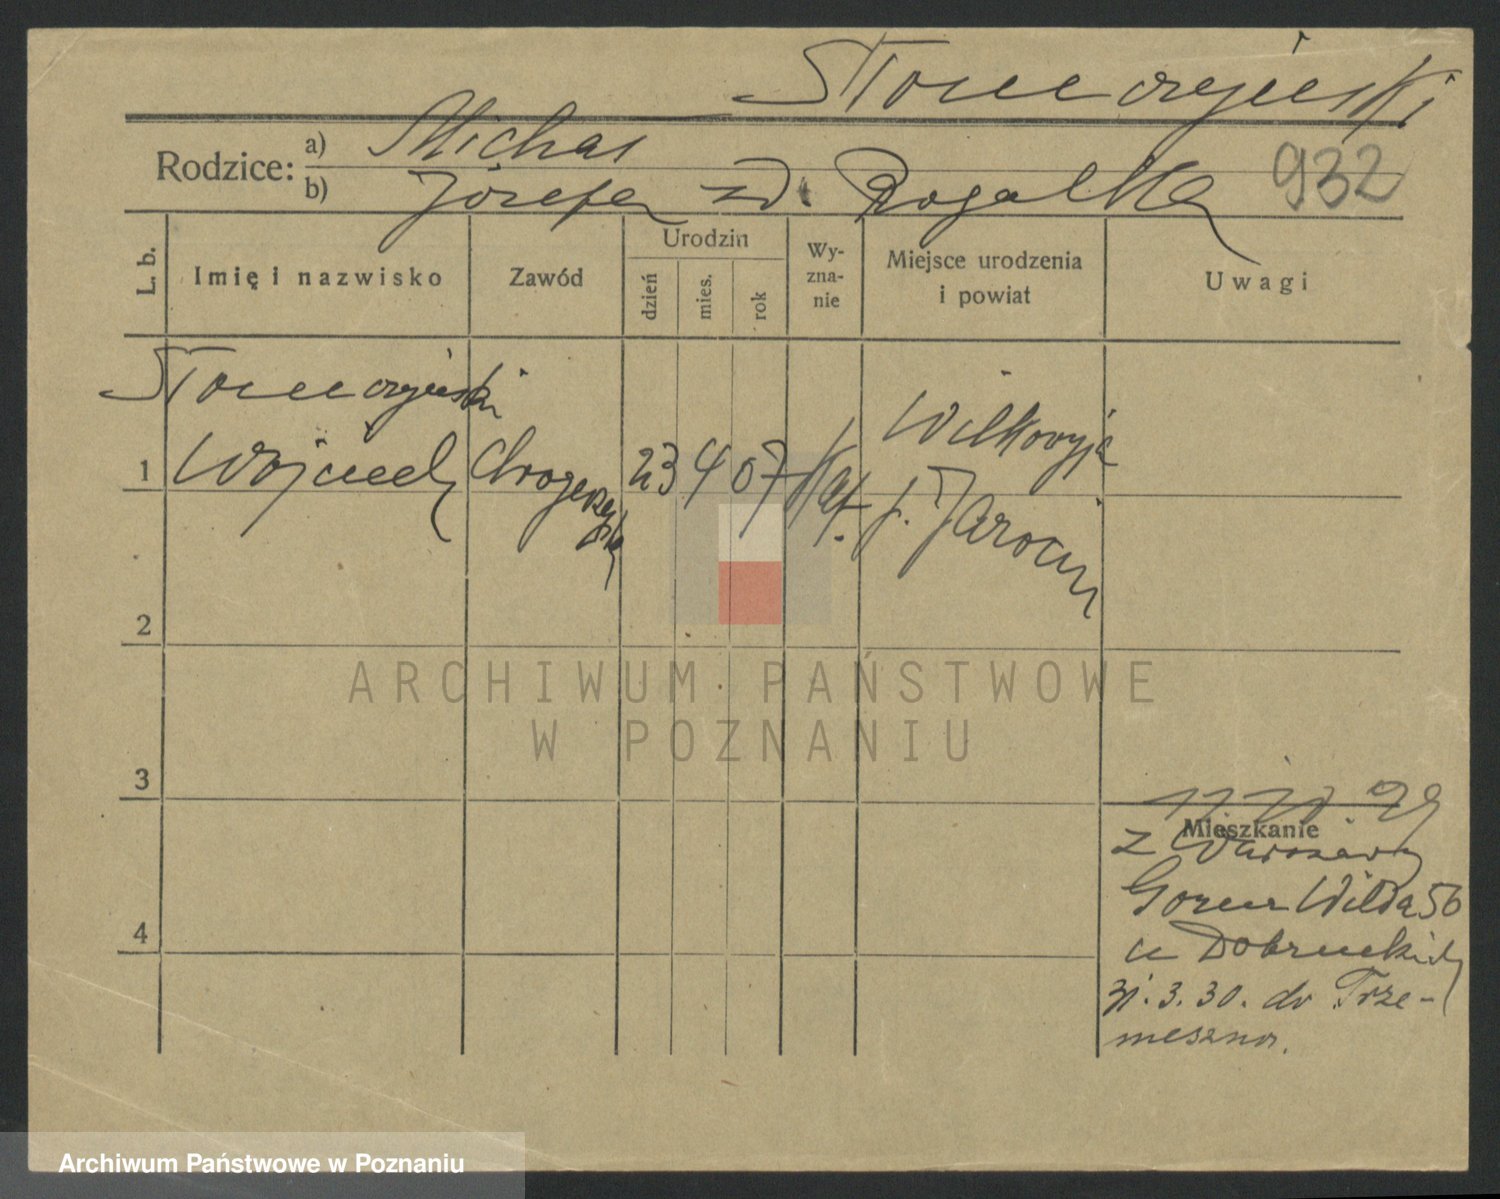 Słomczyński
Rodzice: a) Michał
b) Józefa zd. Rogalka
932
L. b.
Imię i nazwisko
Zawód
Urodzin
dzień
mies.
rok
Wy-
zna-
nie
Miejsce urodzenia
i powiat
Uwagi
Słomczyński
1 Wojciech
23 4 07 Kat.
Wilkowyja
p. Jarocin
2
ARCHIWUM PAŃSTWOWE
W POZNANIU
3
29
Mieszkanie
z Warszawy
Górna Wilda 56
u
31.3.30. do Trze-
meszna.
4
Archiwum Państwowe w Poznaniu